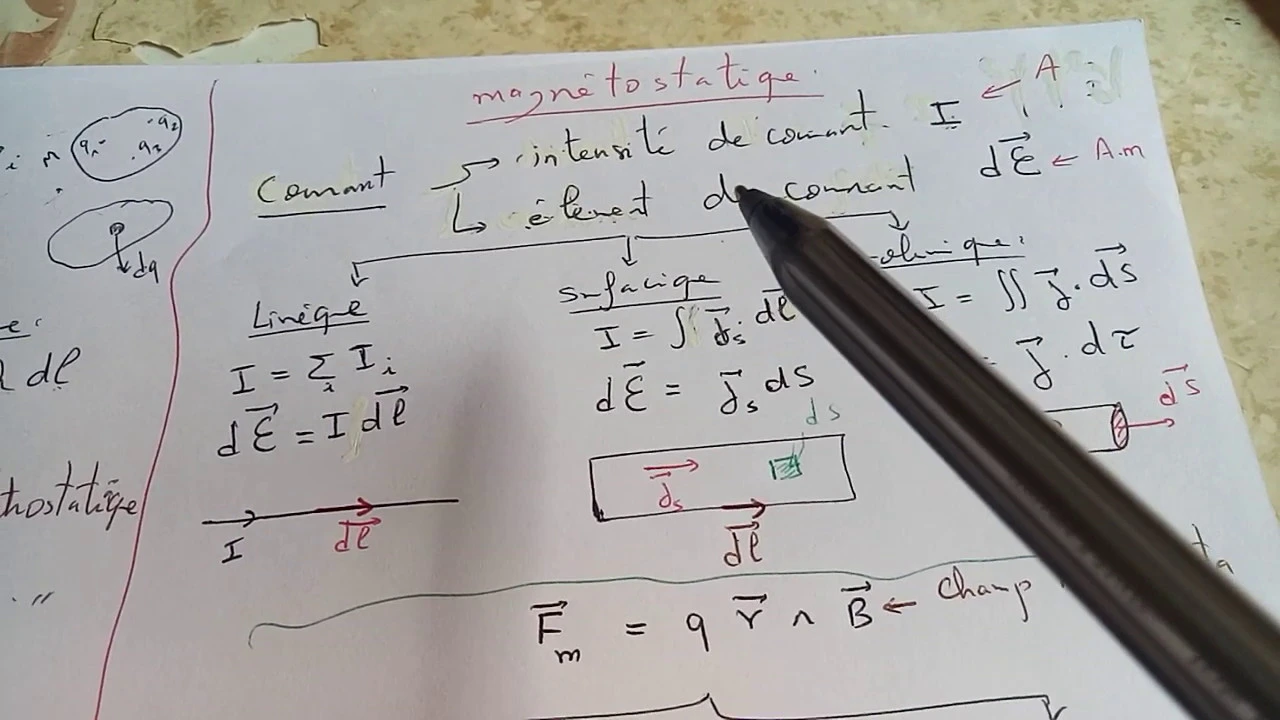 magnétostatique
Courant
→ intensité de courant. I ← A
→ élement de courant dℰ⃗ ← A.m
Linéique
I = Σᵢ Iᵢ
dℰ⃗ = I dℓ⃗
I dℓ⃗
Surfacique
I = ∫ j⃗s . dℓ⃗
dℰ⃗ = j⃗s dS
ds
j⃗s
dℓ⃗
olumique:
I = ∬ j⃗ . dS⃗
= j⃗ . dτ
dS⃗
F⃗m = q v⃗ ∧ B⃗ ← champ
q₁ q₂
q₃
dq
dℓ
hostatique